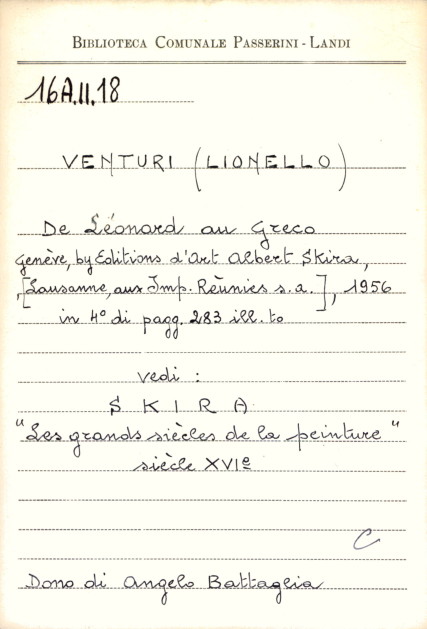 BIBLIOTECA COMUNALE PASSERINI - LANDI
16A.II.18
VENTURI (LIONELLO)
De Léonard au Greco
Genève, by Editions d'Art Albert Skira,
[Lausanne, aux Imp. Réunies s.a.], 1956
in 4° di pagg. 283 ill. to
vedi :
SKIRA
"Les grands siècles de la peinture"
siècle XVIe
C
Dono di Angelo Battaglia